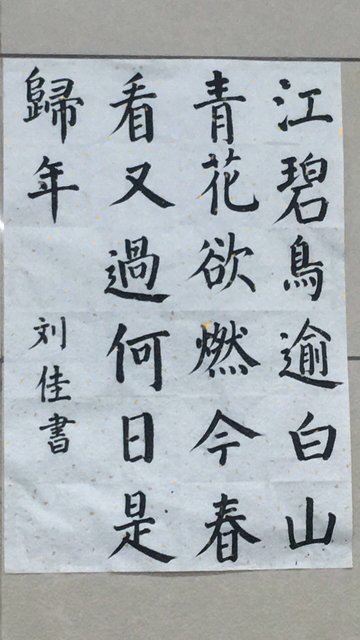 江碧鳥逾白山
青花欲燃今春
看又過何日是
歸年
刘佳書